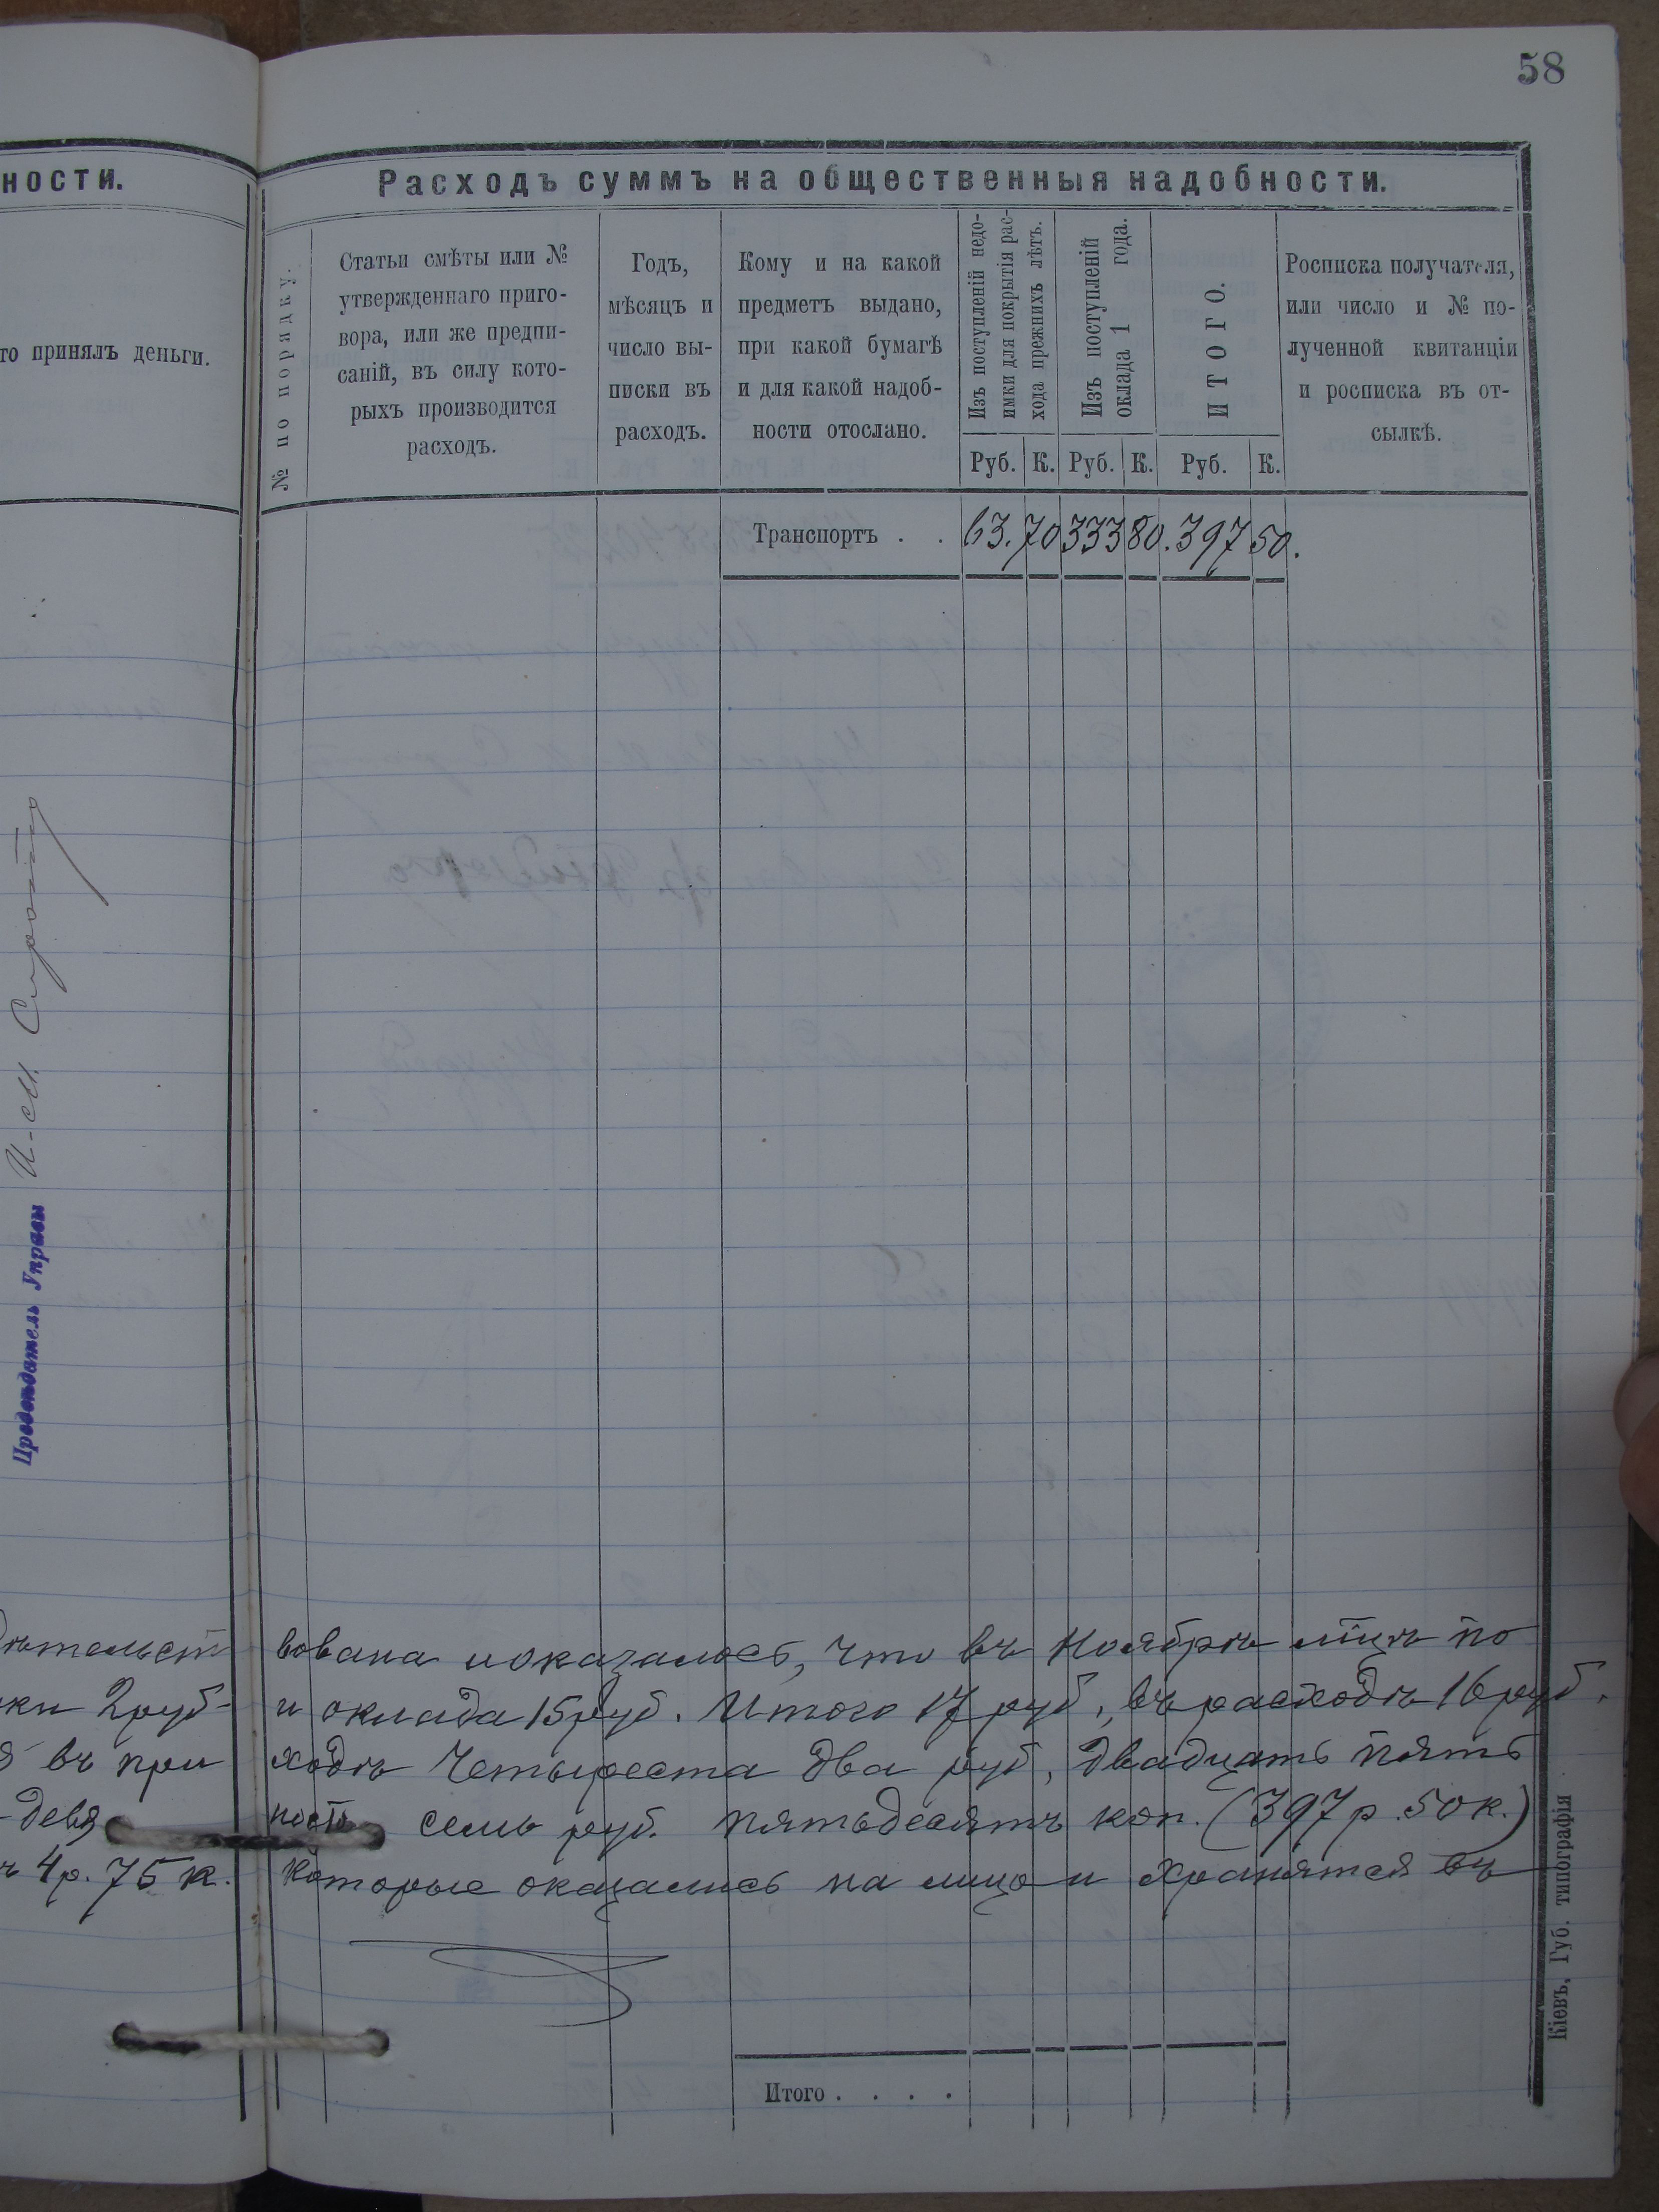 58
ности.
то принялъ деньги.
Предсѣдатель Управы
Расходъ суммъ на общественныя надобности.
№ по порядку.
Статьи смѣты или №
утвержденнаго приго-
вора, или же предпи-
саній, въ силу кото-
рыхъ производится
расходъ.
Годъ,
мѣсяцъ и
число вы-
писки въ
расходъ.
Кому и на какой
предметъ выдано,
при какой бумагѣ
и для какой надоб-
ности отослано.
Изъ поступленій недо-
имки для покрытія рас-
хода прежнихъ лѣтъ.
Изъ поступленій
оклада 1 года.
ИТОГО.
Росписка получателя,
или число и № по-
лученной квитанціи
и росписка въ от-
сылкѣ.
Руб. К. Руб. К. Руб. К.
Транспортъ . . 63. 70 333 80. 397 50.
дѣтельст вована и оказалось, что въ Ноябрѣ м-цѣ по
ки 2 руб- и оклада 15 руб. Итого 17 руб., въ расходѣ 16 руб.
въ при ходѣ Четыреста два руб. двадцать пять
-девя носто семь руб. пятьдесятъ коп. (397 р. 50 к.)
4 р. 75 к. Которые оказались на лицо и хранятся въ
Итого . . . .
Кіевъ, Губ. типографія